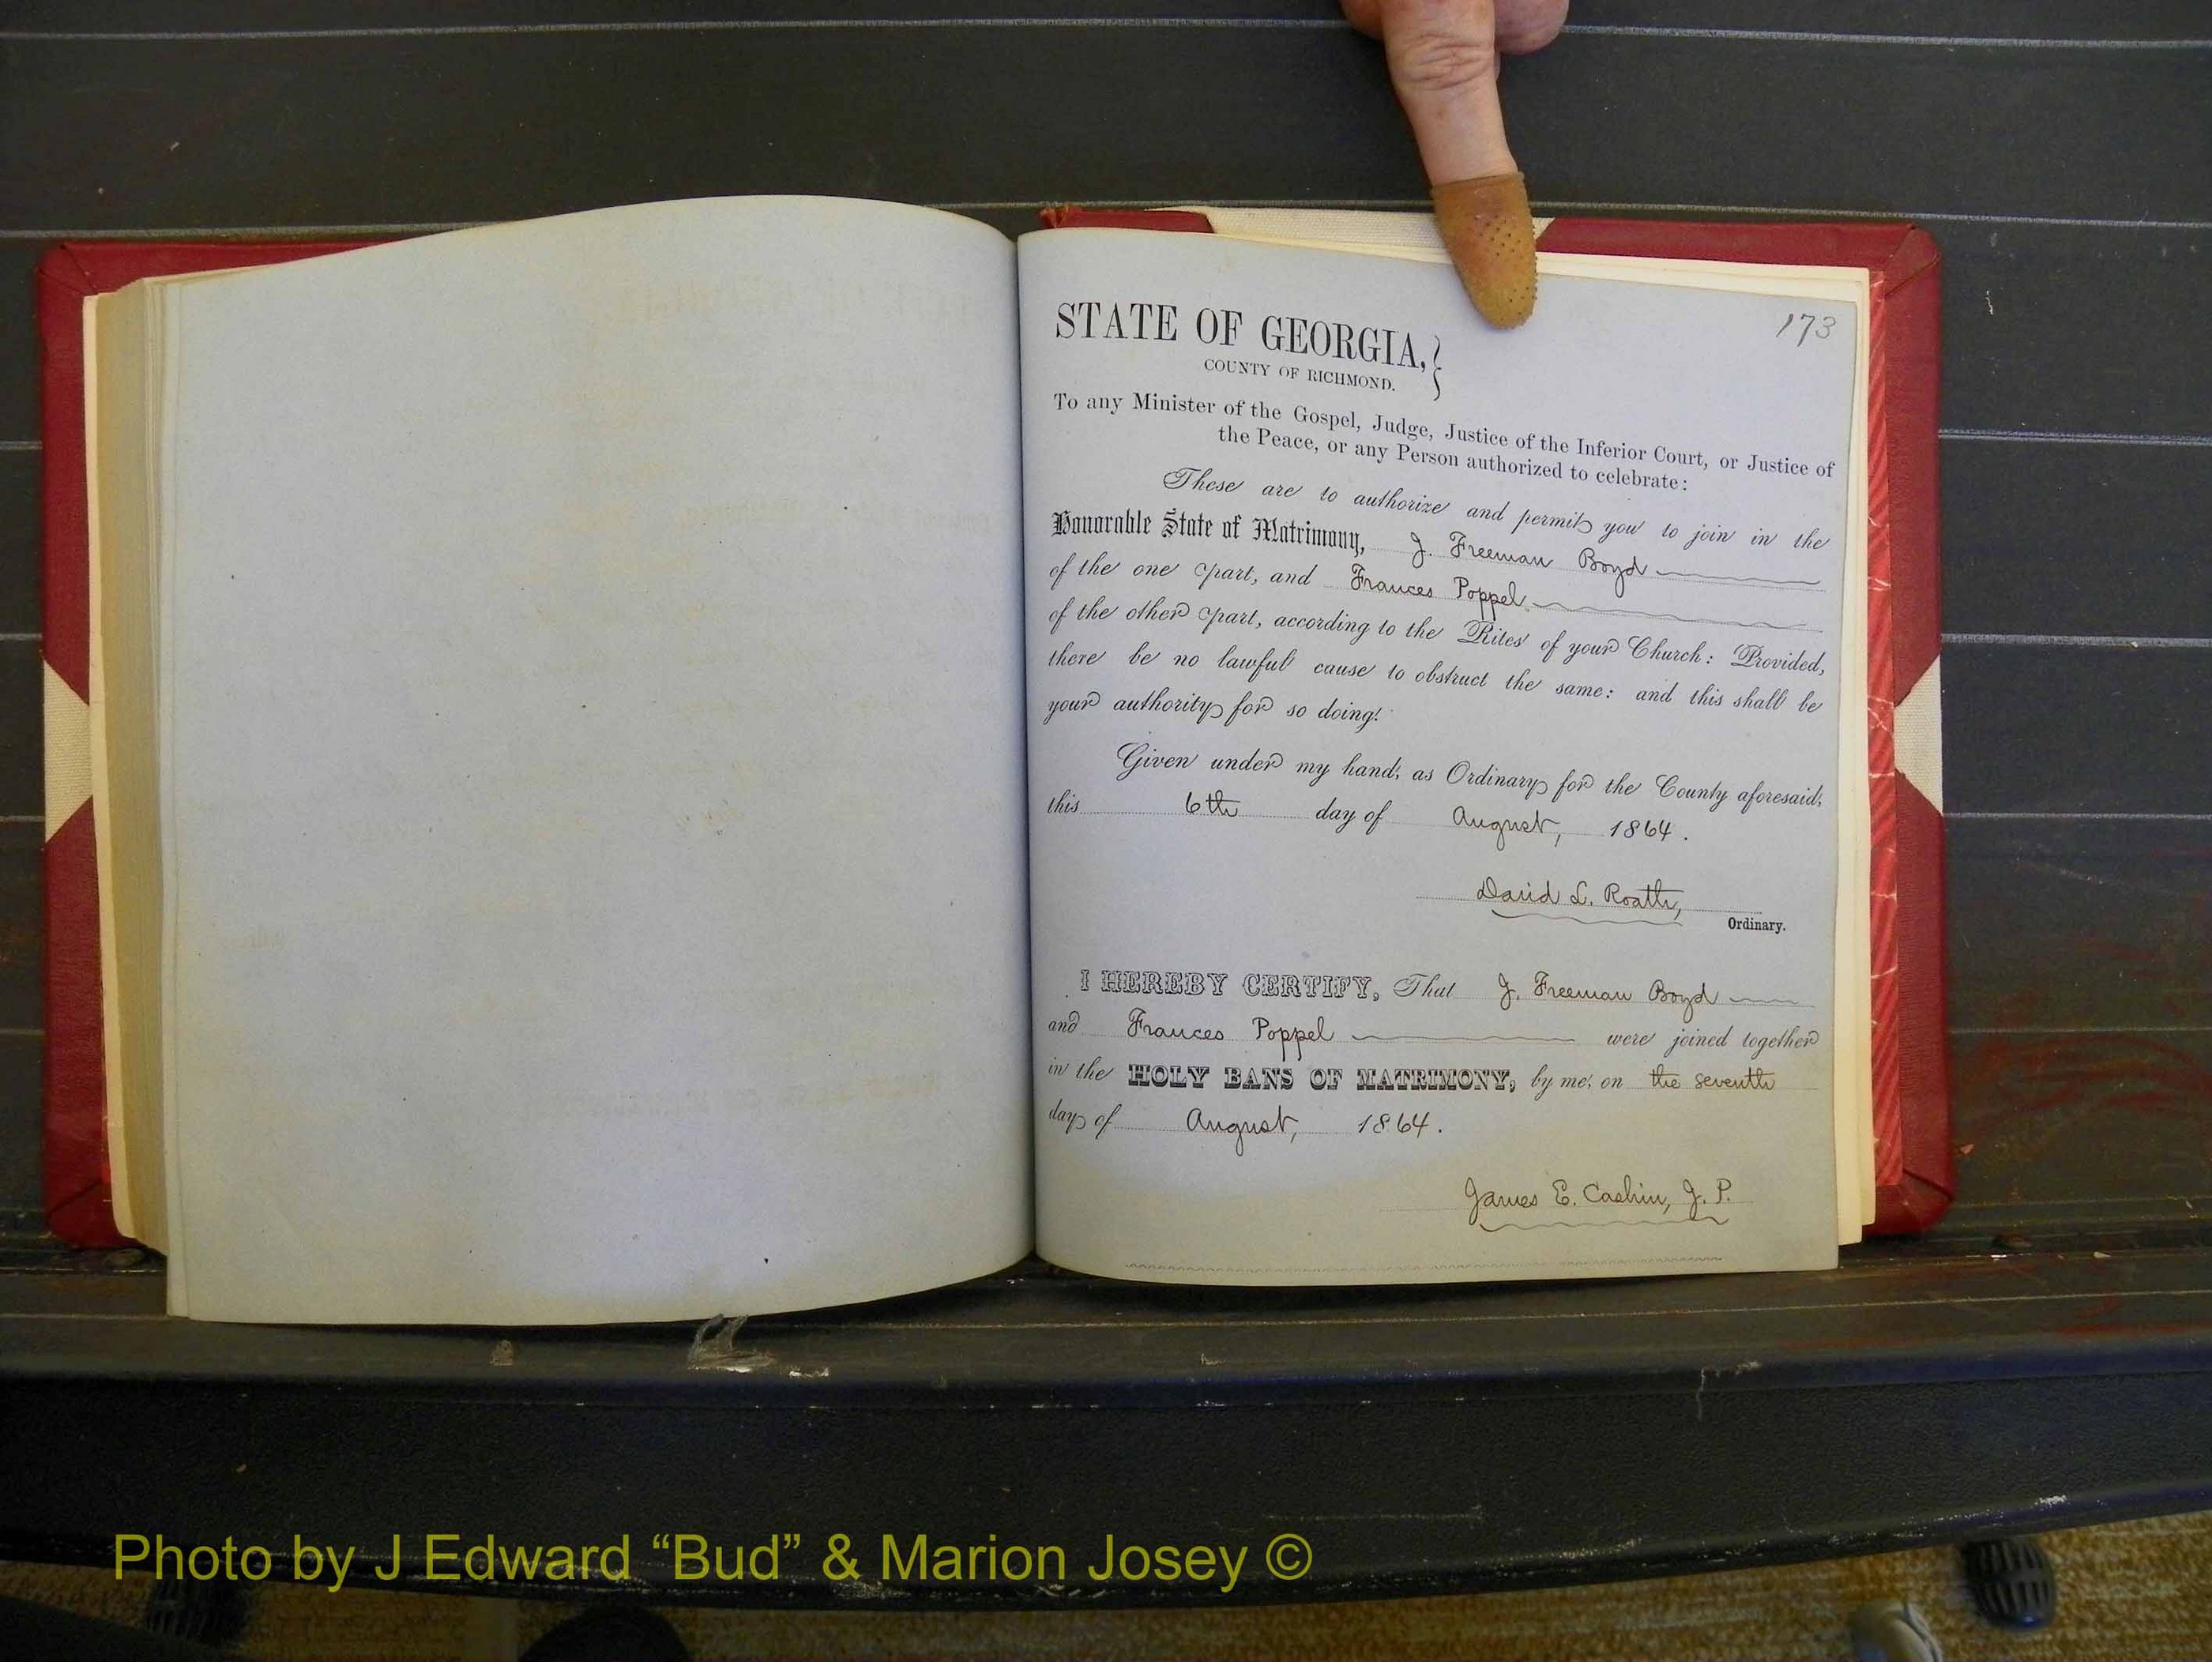 173
STATE OF GEORGIA,}
COUNTY OF RICHMOND.
To any Minister of the Gospel, Judge, Justice of the Inferior Court, or Justice of
the Peace, or any Person authorized to celebrate:
These are to authorize and permit you to join in the
Honorable State of Matrimony, J. Freeman Boyd
of the one part, and Frances Poppel
of the other part, according to the Rites of your Church: Provided,
there be no lawful cause to obstruct the same: and this shall be
your authority for so doing.
Given under my hand, as Ordinary for the County aforesaid,
this 6th day of August, 1864.
David L. Roath,
Ordinary.
I HEREBY CERTIFY, That J. Freeman Boyd
and Frances Poppel were joined together
in the HOLY BANS OF MATRIMONY, by me, on the seventh
day of August, 1864.
James E. Cashin, J. P.
Photo by J Edward “Bud” & Marion Josey ©